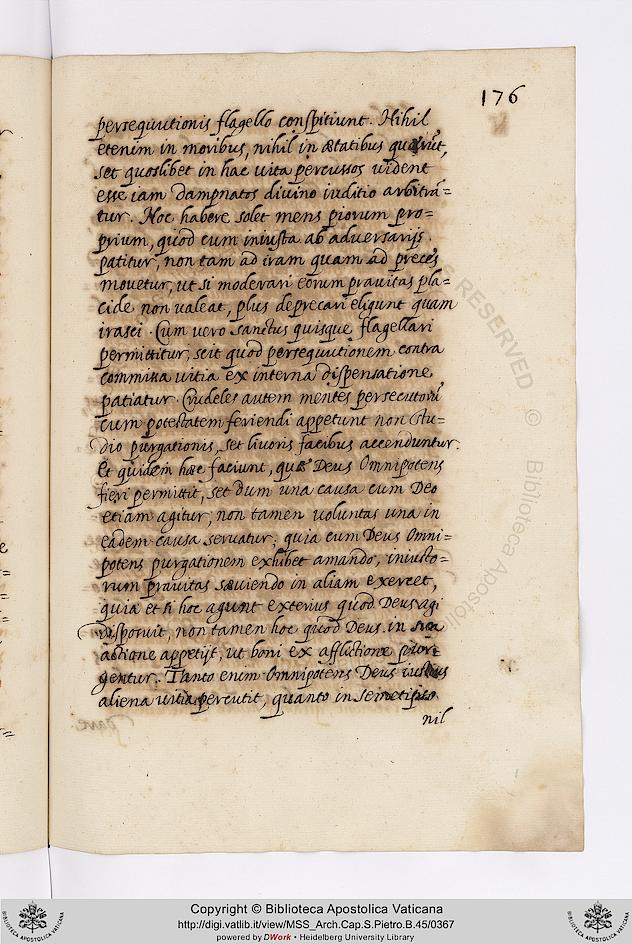 176
persequutionis flagello conspitiunt. Nihil
etenim in moribus, nihil in ætatibus
set quoslibet in hac vita percussos vident
esse iam dampnatos divino iuditio arbitrã=
tur. Hoc habere solet mens piorum pro=
prium, quod cum iniusta ab adversarijs
patitur, non tam ad iram quam ad preces
movetur, ut si moderari eorum pravitas pla=
cide non valeat, plus deprecari eligunt quam
irasci. Cum vero sanctus quisque flagellari
permittitur, scit quod persequutionem contra
commissa vitia ex interna dispensatione
patiatur. Crudeles autem mentes persecutorũ
cum potestatem feriendi appetunt non stu=
dio purgationis, set livoris facibus accenduntur.
Et quidem hæc faciunt, quæ Deus Omnipotens
fieri permittit, set dum una causa cum Deo
etiam agitur, non tamen voluntas una in
eadem causa servatur; quia cum Deus Omni=
potens purgationem exhibet amando, iniusto=
rum pravitas sæviendo in aliam exercet,
quia et si hoc agunt exterius quod Deus agi
disposuit, non tamen hoc quod Deus in sua
actione appetijt, ut boni ex afflictione
gentur. Tanto enim Omnipotens Deus iustius
aliena vitia percutit, quanto in semetipso
nil
RESERVED © Biblioteca Apostolic
Copyright © Biblioteca Apostolica Vaticana
http://digi.vatlib.it/view/MSS_Arch.Cap.S.Pietro.B.45/0367
powered by DWork • Heidelberg University Library